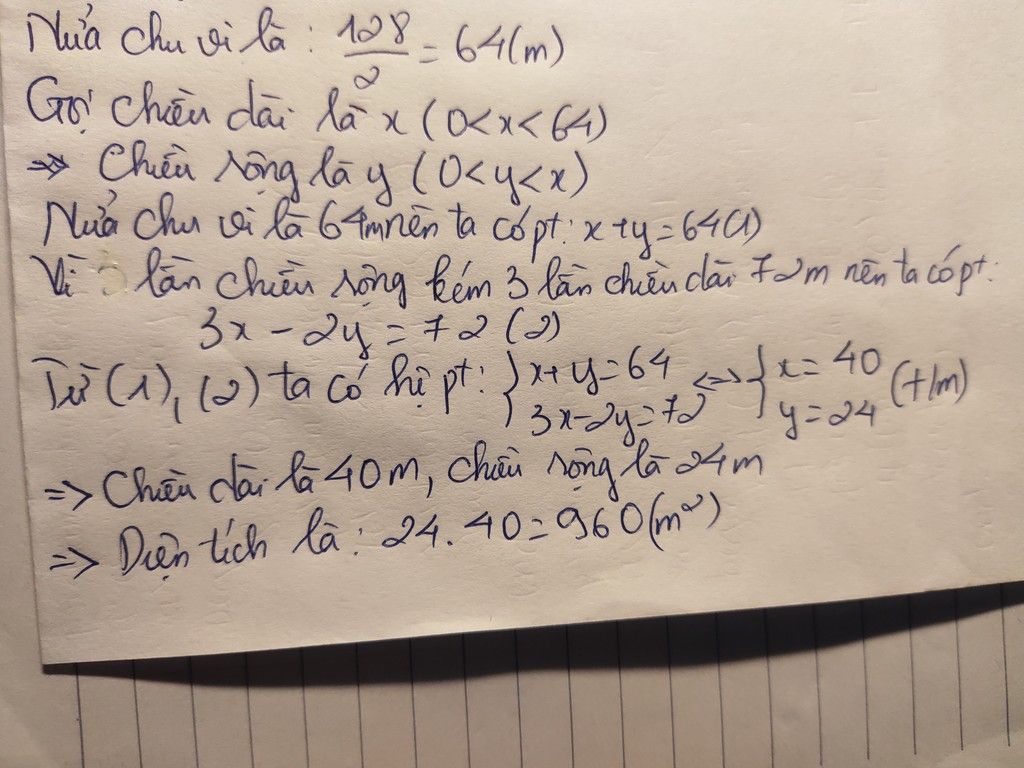 Nửa chu vi là : 128/2 = 64(m)
Gọi chiều dài là x (0<x<64)
=> Chiều rộng là y (0<y<x)
Nửa chu vi là 64m nên ta có pt: x+y=64(1)
Vì lần chiều rộng kém 3 lần chiều dài 72m nên ta có pt:
3x-2y=72 (2)
Từ (1), (2) ta có hệ pt: { x+y=64 <=> { x=40 (t/m)
3x-2y=72 y=24
=> Chiều dài là 40m, chiều rộng là 24m
=> Diện tích là: 24.40=960(m²)